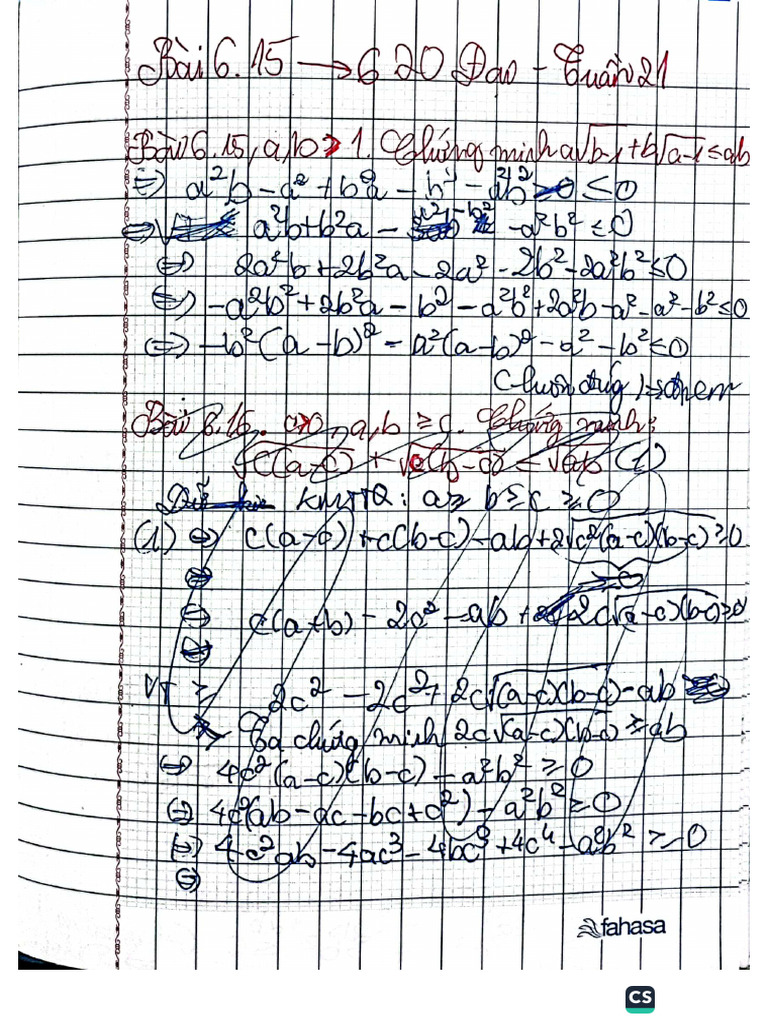 Bài 6.15 → 6 20 Đạo - Tuần 21
Bài 6.15, a,b ≥ 1. Chứng minh a√b-1 + b√a-1 ≤ ab
⇔ a²b - a² + b²a - b² - a²b² ≤ 0
⇔ a²b + b²a - a² - b² - a²b² ≤ 0
⇔ 2a²b + 2b²a - 2a² - 2b² - 2a²b² ≤ 0
⇔ -a²b² + 2b²a - b² - a²b² + 2a²b - a² - a² - b² ≤ 0
⇔ -b²(a-b)² - a²(a-b)² - a² - b² ≤ 0
Luôn đúng ⇒ đpcm
Bài 6.16. c>0, a,b ≥ c. Chứng minh:
√c(a-c) + √c(b-c) ≤ √ab (1)
KMTTQ: a ≥ b ≥ c ≥ 0
(1) ⇔ c(a-c) + c(b-c) - ab + 2√c²(a-c)(b-c) ≥ 0
⇔
⇔ c(a+b) - 2c² - ab + 2c√(a-c)(b-c) ≥ 0
⇔
VT ≥ 2c² - 2c² + 2c√(a-c)(b-c) - ab
Ta chứng minh 2c√(a-c)(b-c) ≥ ab
⇔ 4c²(a-c)(b-c) - a²b² ≥ 0
⇔ 4c²(ab - ac - bc + c²) - a²b² ≥ 0
⇔ 4c²ab - 4ac³ - 4bc³ + 4c⁴ - a²b² ≥ 0
⇔
fahasa
CS